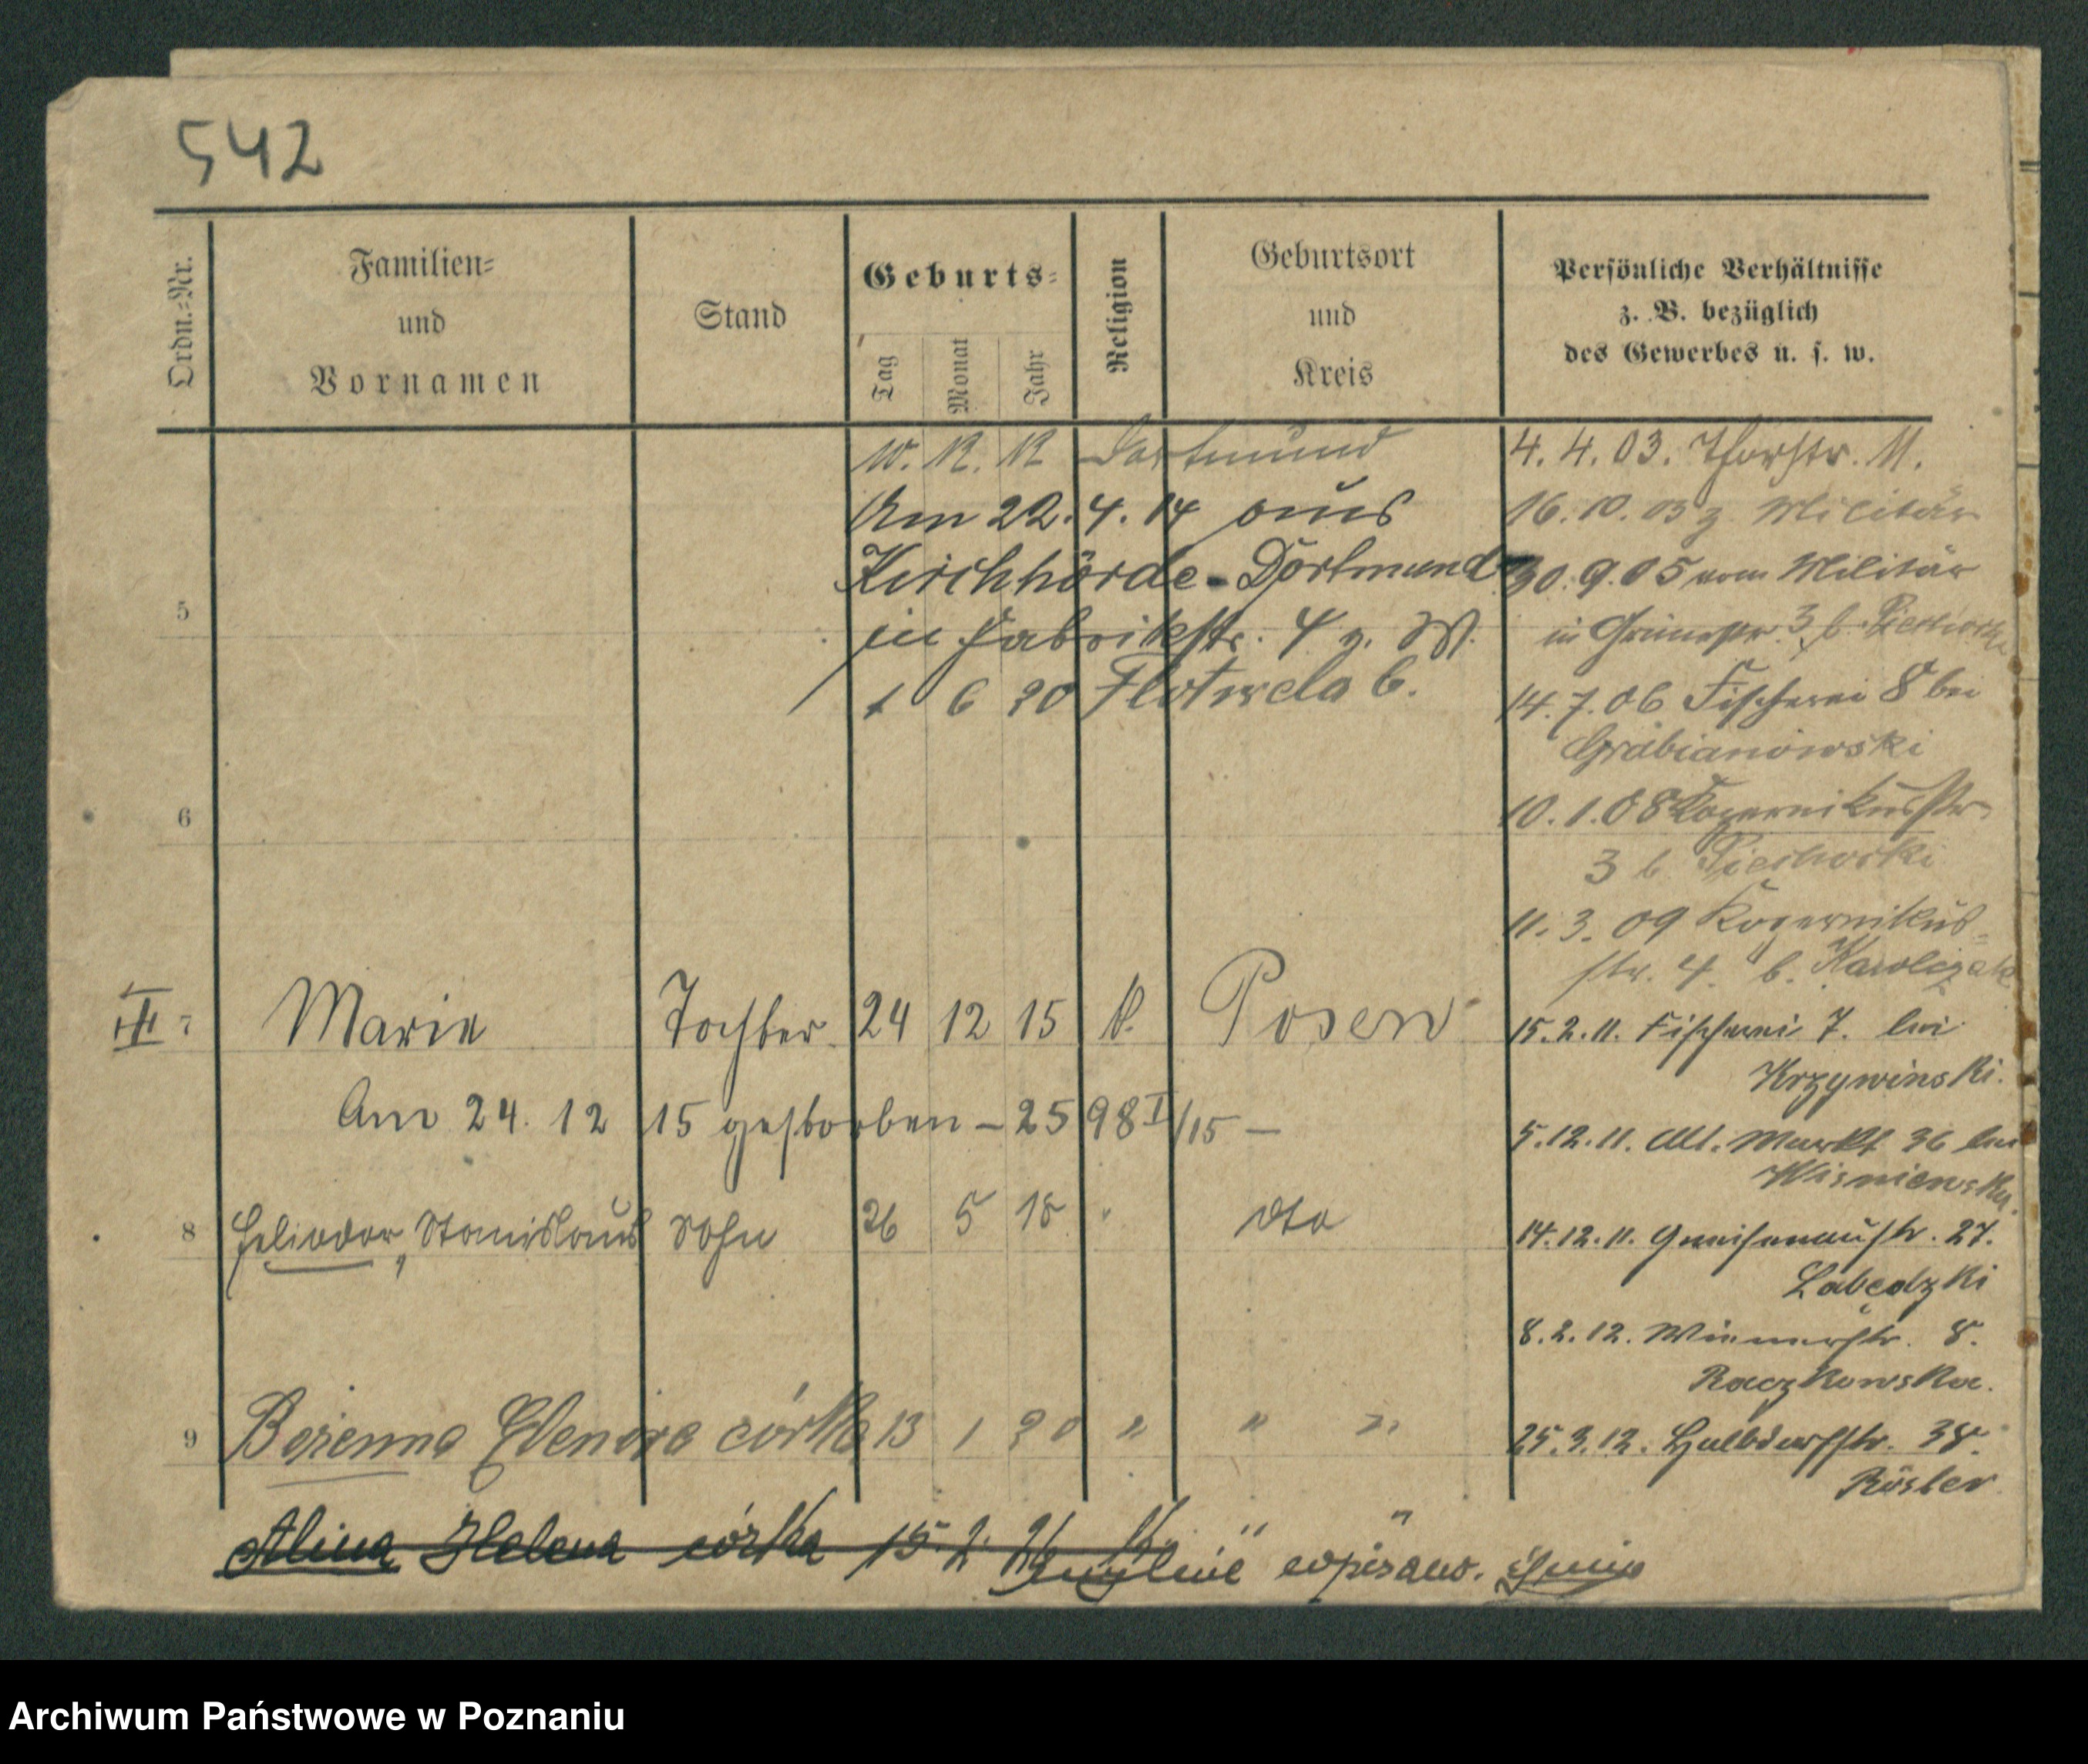 542
Ordn.-Nr.
Familien-
und
Vornamen
Stand
Geburts-
Tag
Monat
Jahr
Religion
Geburtsort
und
Kreis
Persönliche Verhältnisse
z. B. bezüglich
des Gewerbes u. s. w.
10. 12. 12 Dortmund
Am 22. 4. 14 aus
Kirchhörde-Dortmund
in Fabrikstr. 4 v. W.
1 6 20 Flotwela 6.
5
6
III 7 Marie Tochter 24 12 15 k. Posen
Am 24. 12 15 gestorben – 2598 I/15 –
8 Heliodor, Stanislaus Sohn 26 5 18 " dto
9 Bożenna Elenora córka 13 1 20 " " "
Alina Helena córka 15. 2. 21 k. " "
mylnie wpisano.
4. 4. 03. Thorstr. 11.
16. 10. 03 z. Militär
30. 9. 05 vom Militär
in Grünestr. 3 b. Piechocki
14. 7. 06 Fischerei 8 bei
Grabianowski
10. 1. 08 Kopernikusstr.
3 b. Piechocki
11. 3. 09 Kopernikus-
str. 4. b. Karolczak
15. 2. 11. Fischerei 7. bei
Krzywinski.
5. 12. 11. Alt. Markt 36 bei
Wisniewska.
14. 12. 11. Gneisenaustr. 27.
Labedzki
8. 2. 12. Wienerstr. 8.
Raczkowska.
25. 3. 12. Halbdorfstr. 38.
Rösler
Archiwum Państwowe w Poznaniu